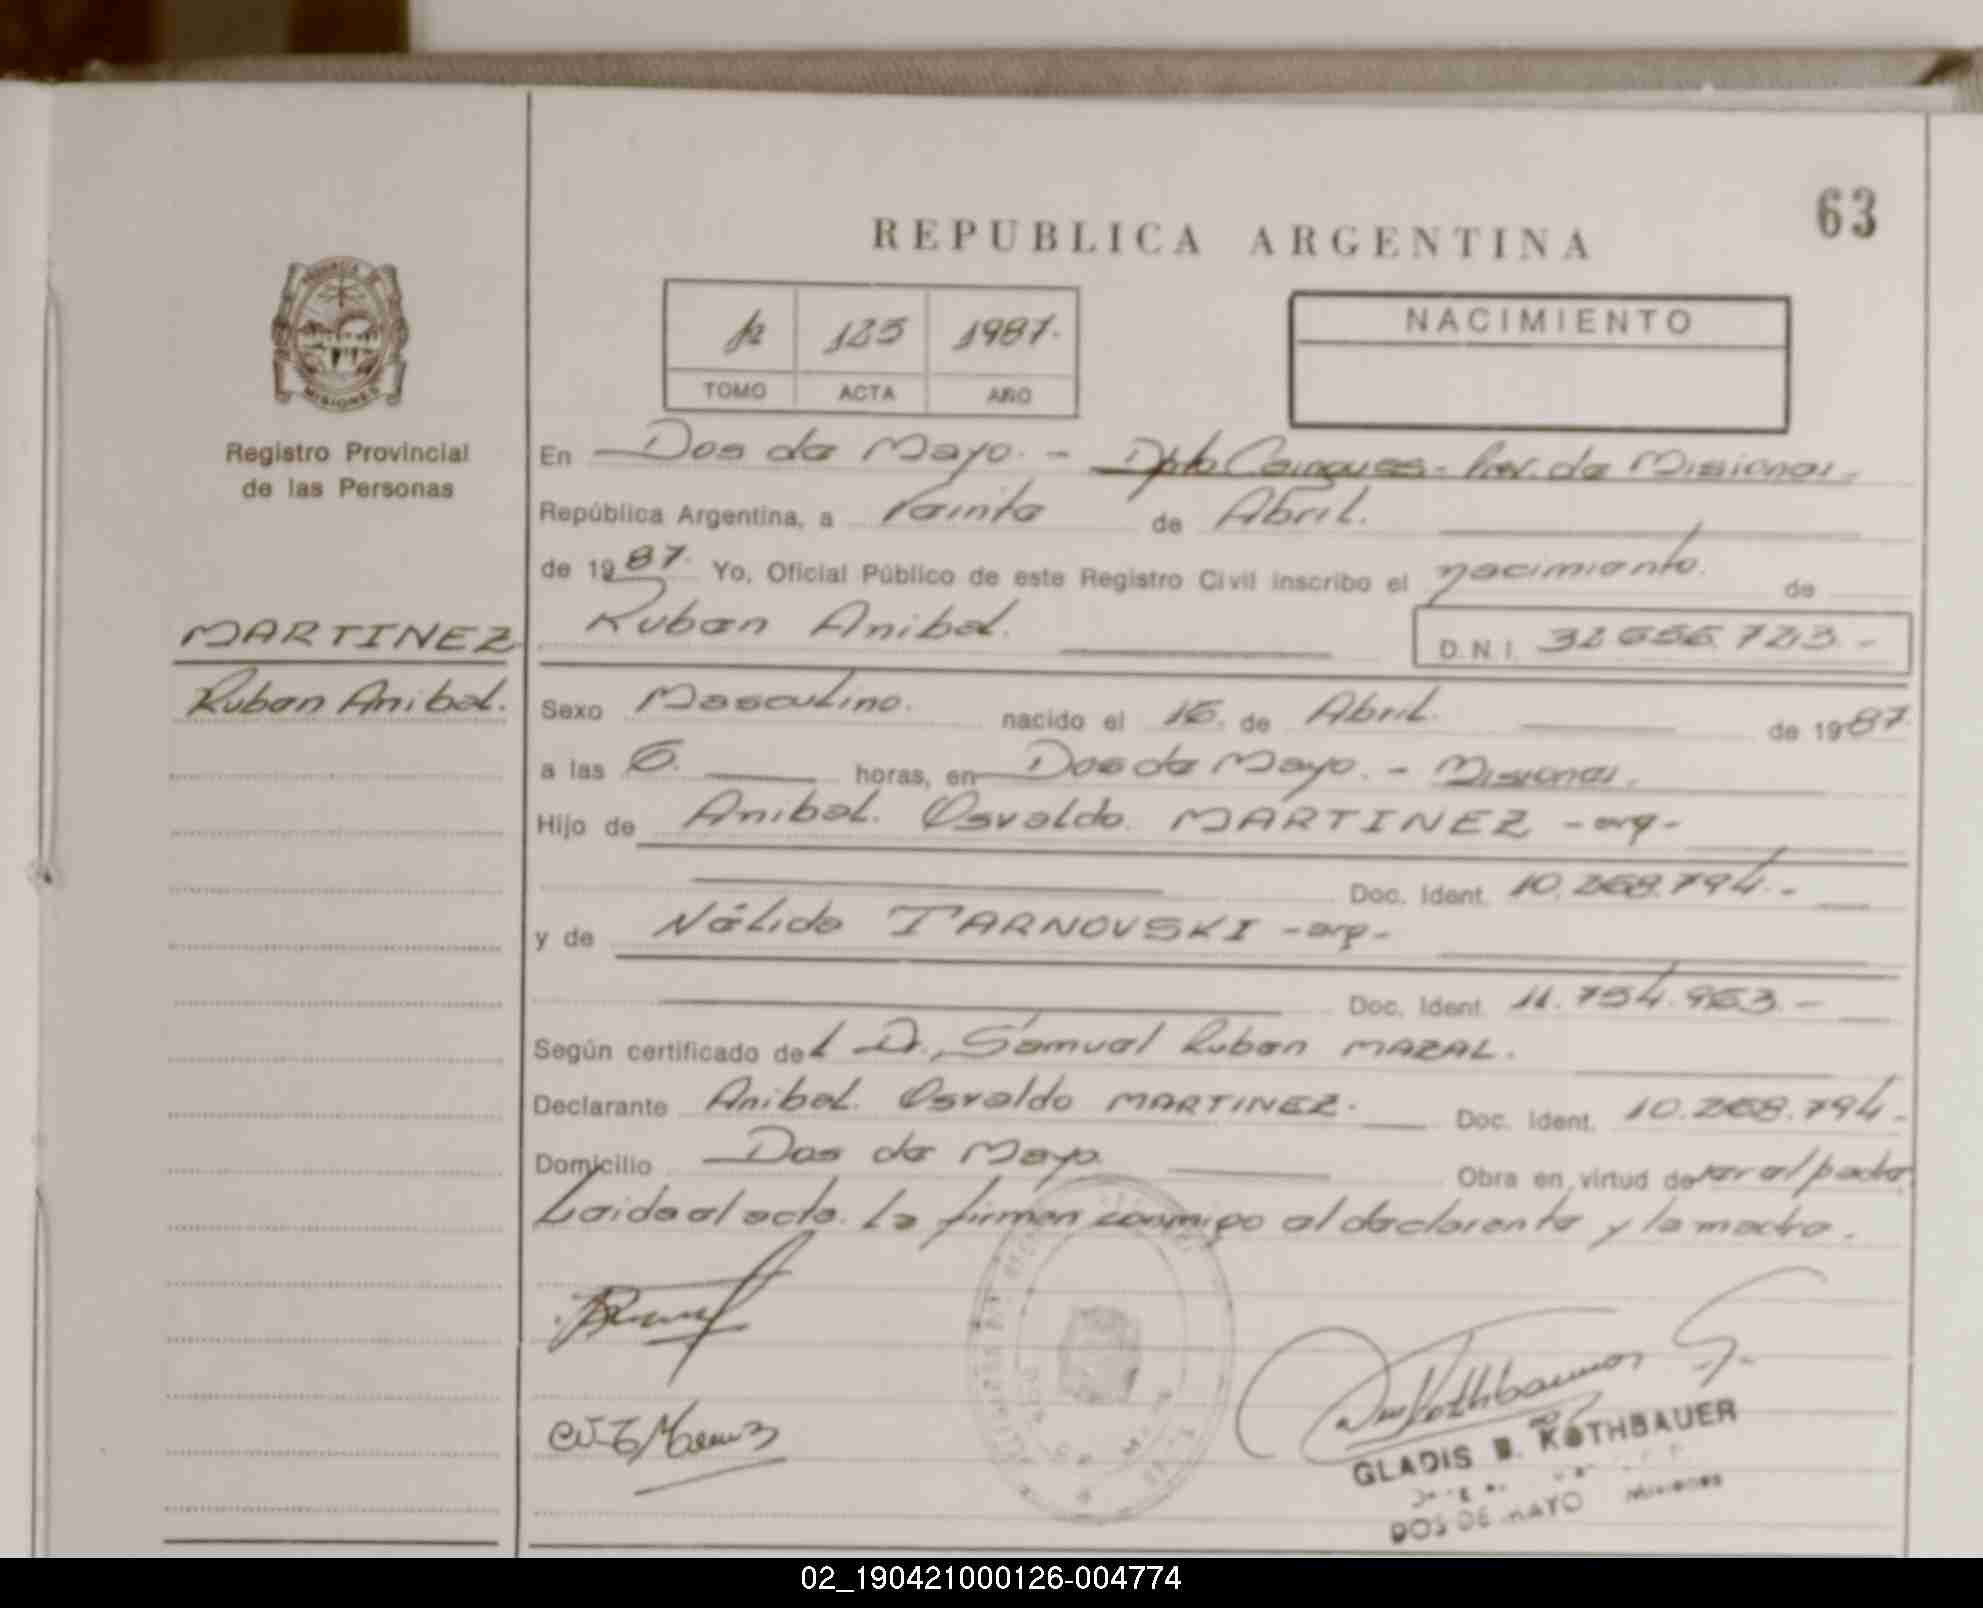 63
REPUBLICA ARGENTINA
MISIONES
1º 125 1987.
TOMO ACTA AÑO
NACIMIENTO
Registro Provincial
de las Personas
En Dos de Mayo. - Dpto Cainguas - Prov. de Misiones.
República Argentina, a veinte de Abril.
de 1987. Yo, Oficial Público de este Registro Civil inscribo el nacimiento. de
MARTINEZ
Ruben Anibal.
Ruben Anibal.
D.N.I.
Sexo Masculino. nacido el 16. de Abril. de 1987.
a las 6. horas, en Dos de Mayo. - Misiones.
Hijo de Anibal. Osvaldo. MARTINEZ - arg -
Doc. Ident. 10.268.794. -
y de Nélida TARNOVSKI - arg -
Doc. Ident. 11.754.963. -
Según certificado del Dr. Samuel Ruben MAZAL.
Declarante Anibal. Osvaldo MARTINEZ. Doc. Ident. 10.268.794. -
Domicilio Dos de Mayo. Obra en virtud de ser el padre
Leida el acta. La firman conmigo el declarante y la madre.
GLADIS KOTHBAUER
DOS DE MAYO Misiones
02_190421000126-004774